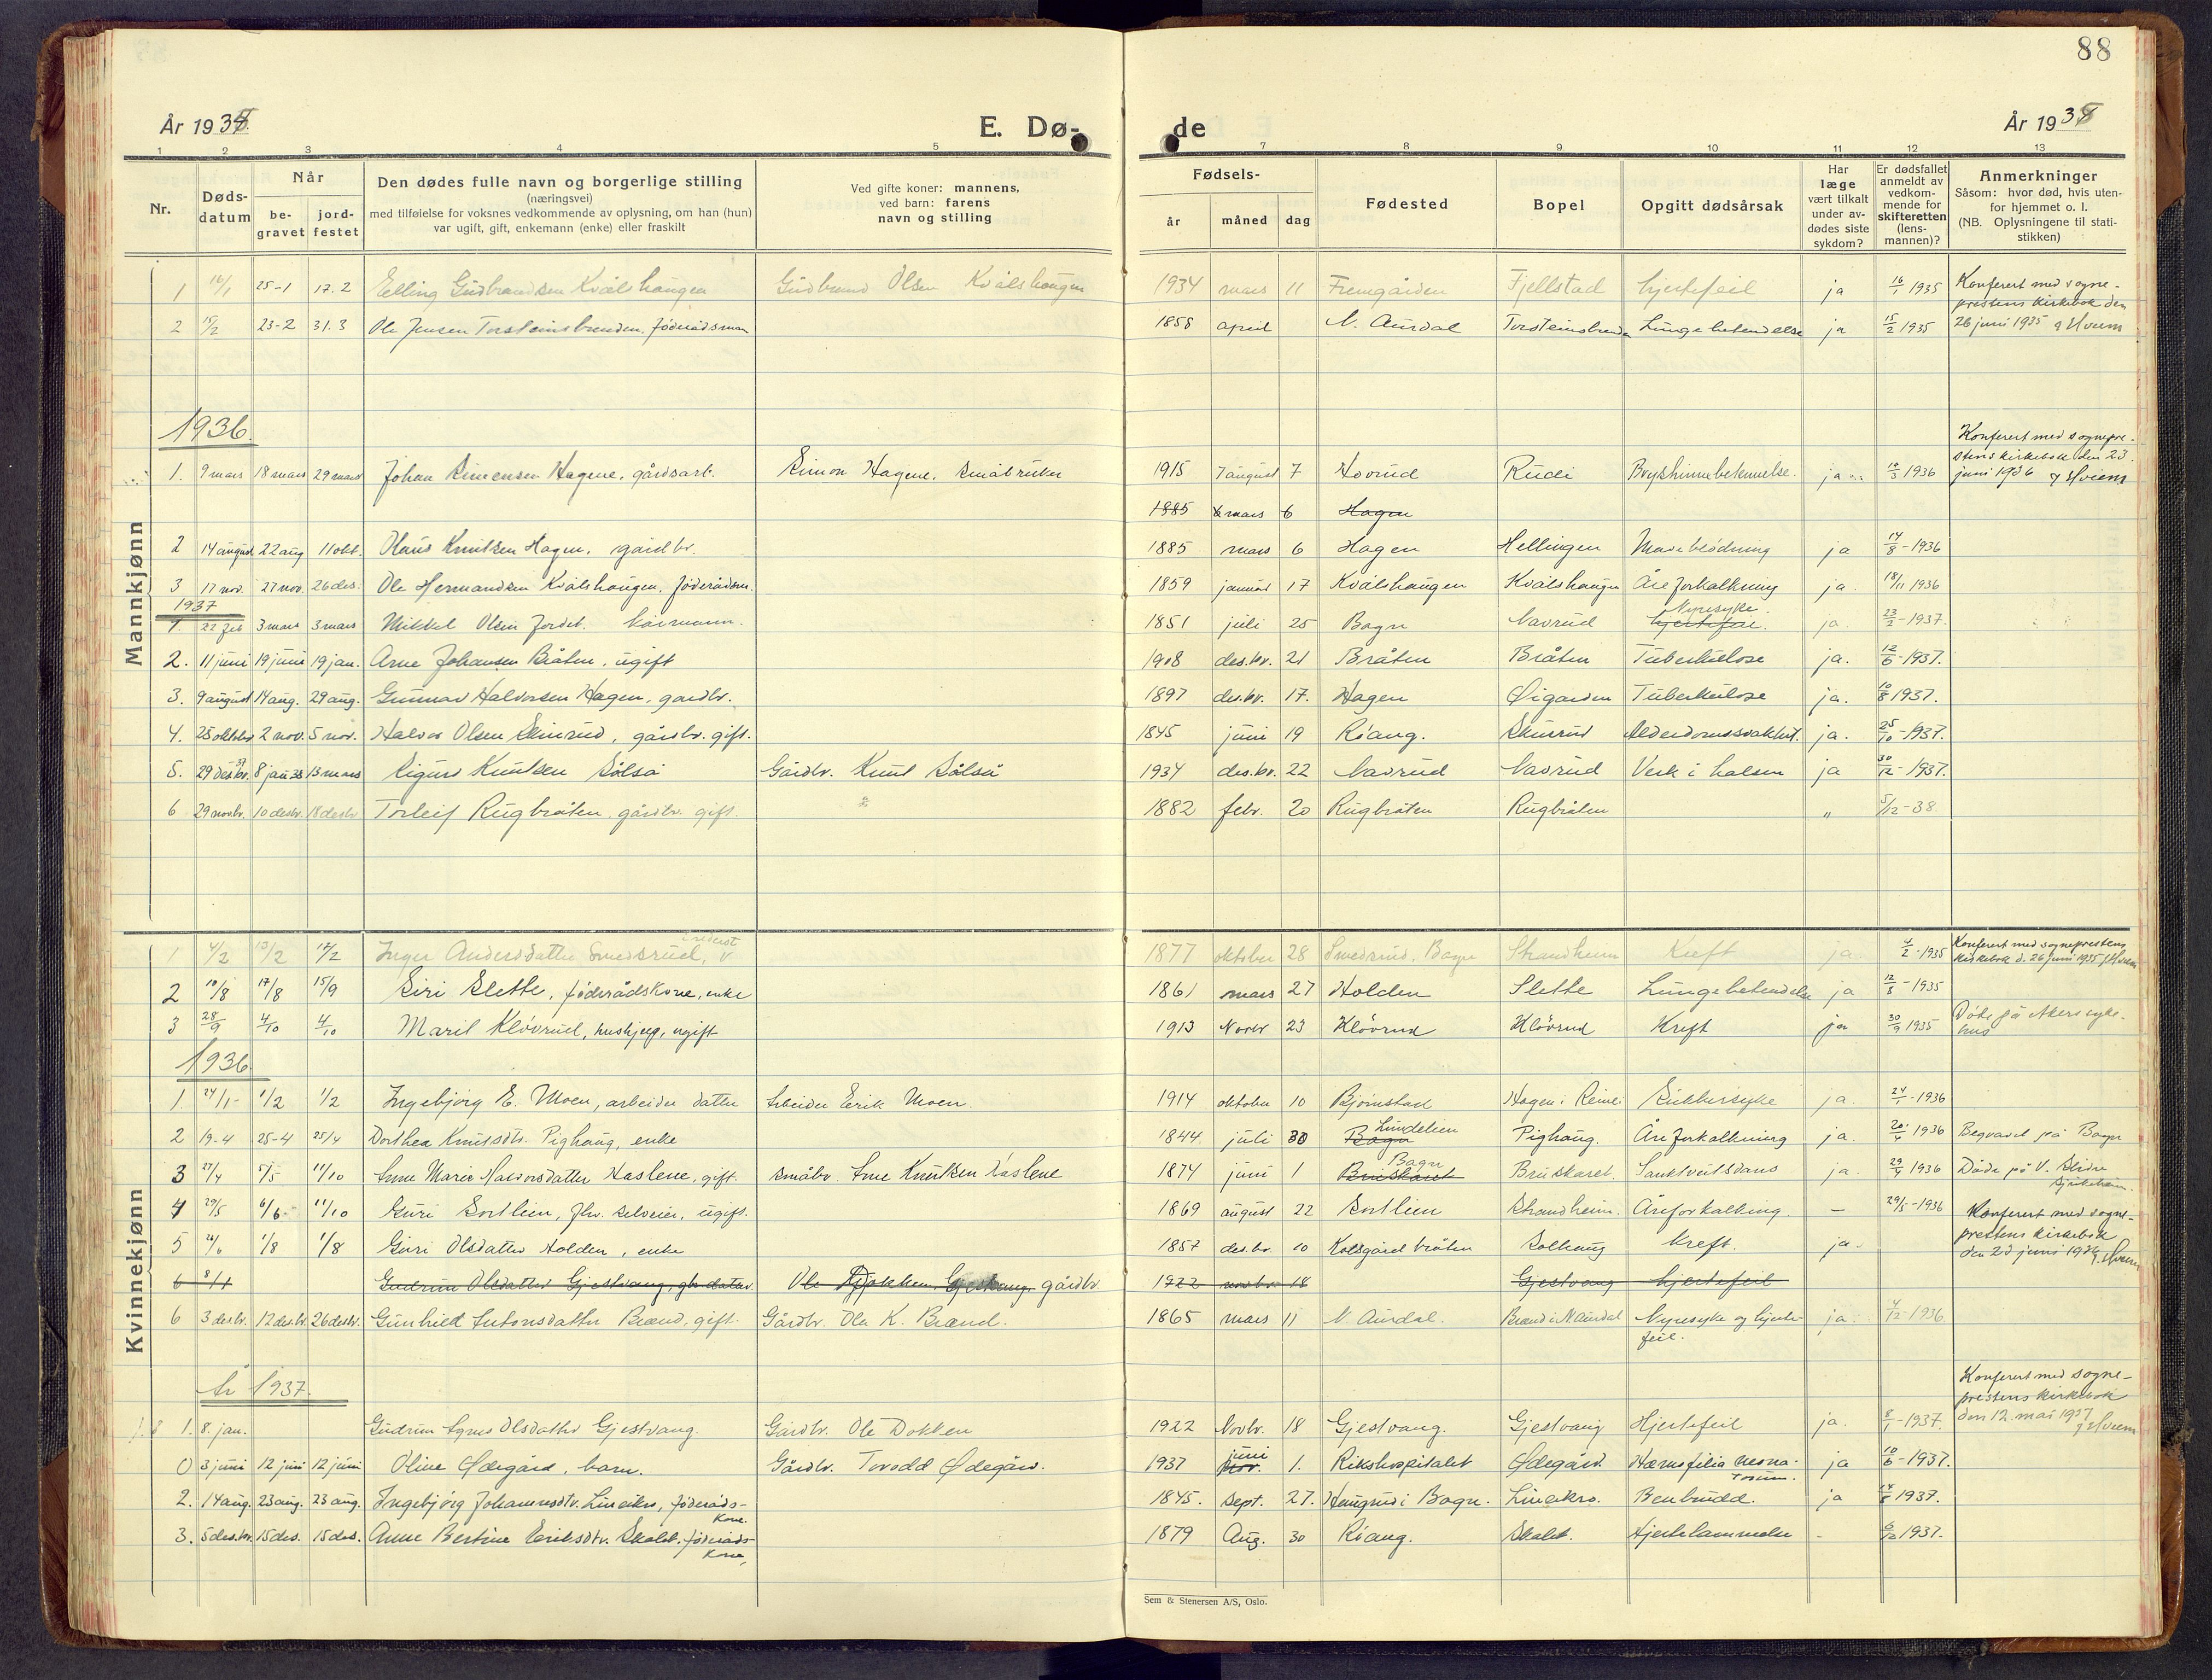 88
År 1935.
E. Dø-
de
År 1935
1 2 3 4 5 7 8 9 10 11 12 13
Nr.
Døds-
datum
Når
be-
gravet
jord-
festet
Den dødes fulle navn og borgerlige stilling
(næringsvei)
med tilføielse for voksnes vedkommende av oplysning, om han (hun)
var ugift, gift, enkemann (enke) eller fraskilt
Ved gifte koner: mannens,
ved barn: farens
navn og stilling
Fødsels-
år
måned
dag
Fødested
Bopel
Opgitt dødsårsak
Har
læge
vært tilkalt
under av-
dødes siste
sykdom?
Er dødsfallet
anmeldt av
vedkom-
mende for
skifteretten
(lens-
mannen)?
Anmerkninger
Såsom: hvor død, hvis uten-
for hjemmet o. l.
(NB. Oplysningene til stati-
stikken)
Mannkjønn
1 16/1 25-1 17.2 Elling Gudbrandsen Kvålshaugen Gudbrand Olsen Kvålshaugen 1934 mars 11 Fremgården Fjellstad hjertefeil ja 16/1 1935 Konferert med sogne-
prestens kirkebok den
2 15/2 23-2 31.3 Ole Jensen Torsteinsbrenden, föderådsman 1858 april N. Aurdal Torsteinsbrenden Lungebetendelse ja 15/2 1935 26 juni 1935 Hvem
1936.
Konferert med sognepre-
stens kirkebok den 23.
1. 9 mars 18 mars 29 mars Johan Simensen Hagene, gårdsarb. Simon Hagene, småbruker 1915 7 august 7 Hovrud Rudi Brysthinnebetennelse. ja 10/3 1936 juni 1936 Hvem
1885 6 mars 6 Hagen
2 14 august 22 aug 11 okt. Olaus Knutsen Hagen, gårdbr. 1885 mars 6 Hagen Hellingen Maveblödning ja 14/8-1936
3 17 nov. 27 nov. 26 des. Ole Hermandsen Kvålshaugen, föderådsm. 1859 januar 17 Kvålshaugen Kvålshaugen Åreforkalkning ja. 18/11 1936
1937
1. 22 feb 3 mars 3 mars Mikkel Olsen Jordet. kårmann. 1851 juli 25 Bagn Havrud Nyresyke. hjertefeil. ja 23/2-1937.
2. 11 juni 19 juni 19 jan. Arne Johansen Bråten, ugift 1908 des.br. 21 Bråten Bråten Tuberkulose ja. 12/6-1937.
3. 9 august 14 aug. 29 aug. Gunnar Halvorsen Hagen, gardbr. 1897 des.br. 17. Hagen Øigarden Tuberkulose ja. 10/8 1937.
4. 25 oktober 2 nov. 5 nov. Halvor Olsen Skinrud, gårdbr. gift. 1845 juni 19 Råang. Skinrud Alderdomssvakhet. ja. 25/10-1937.
5. 29 desbr. 37 8 jan 38 13 mars Sigurd Knutsen Sølså Gårdbr. Knut Sølså 1934 des.br. 22 Havrud Havrud Verk i halsen ja 30/12-1937.
6 29 novbr. 10 desbr. 18 desbr Torleif Rugbråten, gårdbr. gift. 1882 febr. 20 Rugbråten Rugbråten " 5/12-38
Kvinnekjønn
1 4/2 13/2 17/2 Inger Andersdatter Smedsrud, 1877 oktober 28 Smedsrud, Bagn Strandheim Kreft ja 4/2-1935 Konferert med sogneprestens
kirkebok d. 26 juni 1935 Hvem
2 10/8 17/8 15/9 Siri Slette, föderådskone, enke 1861 mars 27 Holden Slette Lungebetendelse ja 12/8-1935
3 28/9 4/10 4/10 Marit Klövrud, hushjelp, ugift 1913 Novbr 23 Klövrud Klövrud Kreft ja 30/9 1935 Döde på Akers syke-
hus
1936
1. 24/1- 1/2 1/2 Ingebjörg E. Moen, arbeider datter Arbeider Eerik Moen. 1914 oktober 10 Björnstad Hagen i Reinli Sukkersyke ja. 24/1-1936
2 19-4 25-4 25/4 Dorthea Knutsdtr. Pighaug, enke 1844 juli 30 Lundelien Bagn Pighaug. Åreforkalkning ja. 20/4 1936 Begravet på Bagn
3 27/4 5/5 11/10 Anne Marie Halvorsdatter Haslene, gift. småbr. Arne Knutsen Haslene 1874 juni 1 Bagn Bruskaret Bruskaret. Sanktveitsdans ja. 29/4 1936 Döde på V. Slidre
sjukeheim.
4 29/5 6/6- 11/10 Guri Sortlien, fhv. selveier, ugift. 1869 august 22 Sortlien Strandheim. Åreforkalking. - 29/5-1936 Konferert med sogne-
prestens kirkebok
5 24/6 1/8 1/8 Guri Olsdatter Holden, enke 1857 des.br. 10 Kolsgård bråten Solhaug kreft. ja. den 23 juni 1936 Hvem
6 8/1 Gudrun Olsdatter Gjestvang, gbr. datter Ole Dokken, Gjestvang, gårdbr. 1922 novbr 18 Gjestvang hjertefeil
6 3 desbr. 12 desbr. 26 desbr. Gunhild Antonsdatter Brænd, gift. Gårdbr. Ole K. Brænd. 1865 mars 11 N. Aurdal. Brænd i N. Aurdal Nyresyke og hjerte-
feil. ja. 4/12-1936
År 1937.
Konferert med sogne-
prestens kirkebok
1. 8. jan. Gudrun Agnes Olsdatter Gjestvang. Gårdbr. Ole Dokken 1922 Novbr. 18 Gjestvang. Gjestvang Hjertefeil ja. 8/1-1937. den 12. mai 1937 Hvem
0 3 juni 12 juni 12 juni Oline Ødegård, barn. Gårdbr. Torodd Ødegård. 1937 juni nov. 1. Rikshospitalet Ødegård. Hæmofilia neona-
torum. ja 10/6-1937.
2. 14 aug. 23 aug. 23 aug. Ingebjörg Johannesdtr. Lineikro, föderåds-
kone. 1845. sept. 27. Haugrud i Bagn. Lineikro. Benbrudd. ja 14/8 1937.
3. 5 des.br. 15 des. 15 des. Anne Bertine Eriksdtr. Skalet. föderåds
kone, 1879 Aug. 30 Råang. Skalet. Hjertelammelse - 6/12 1937.
Sem & Stenersen A/S, Oslo.